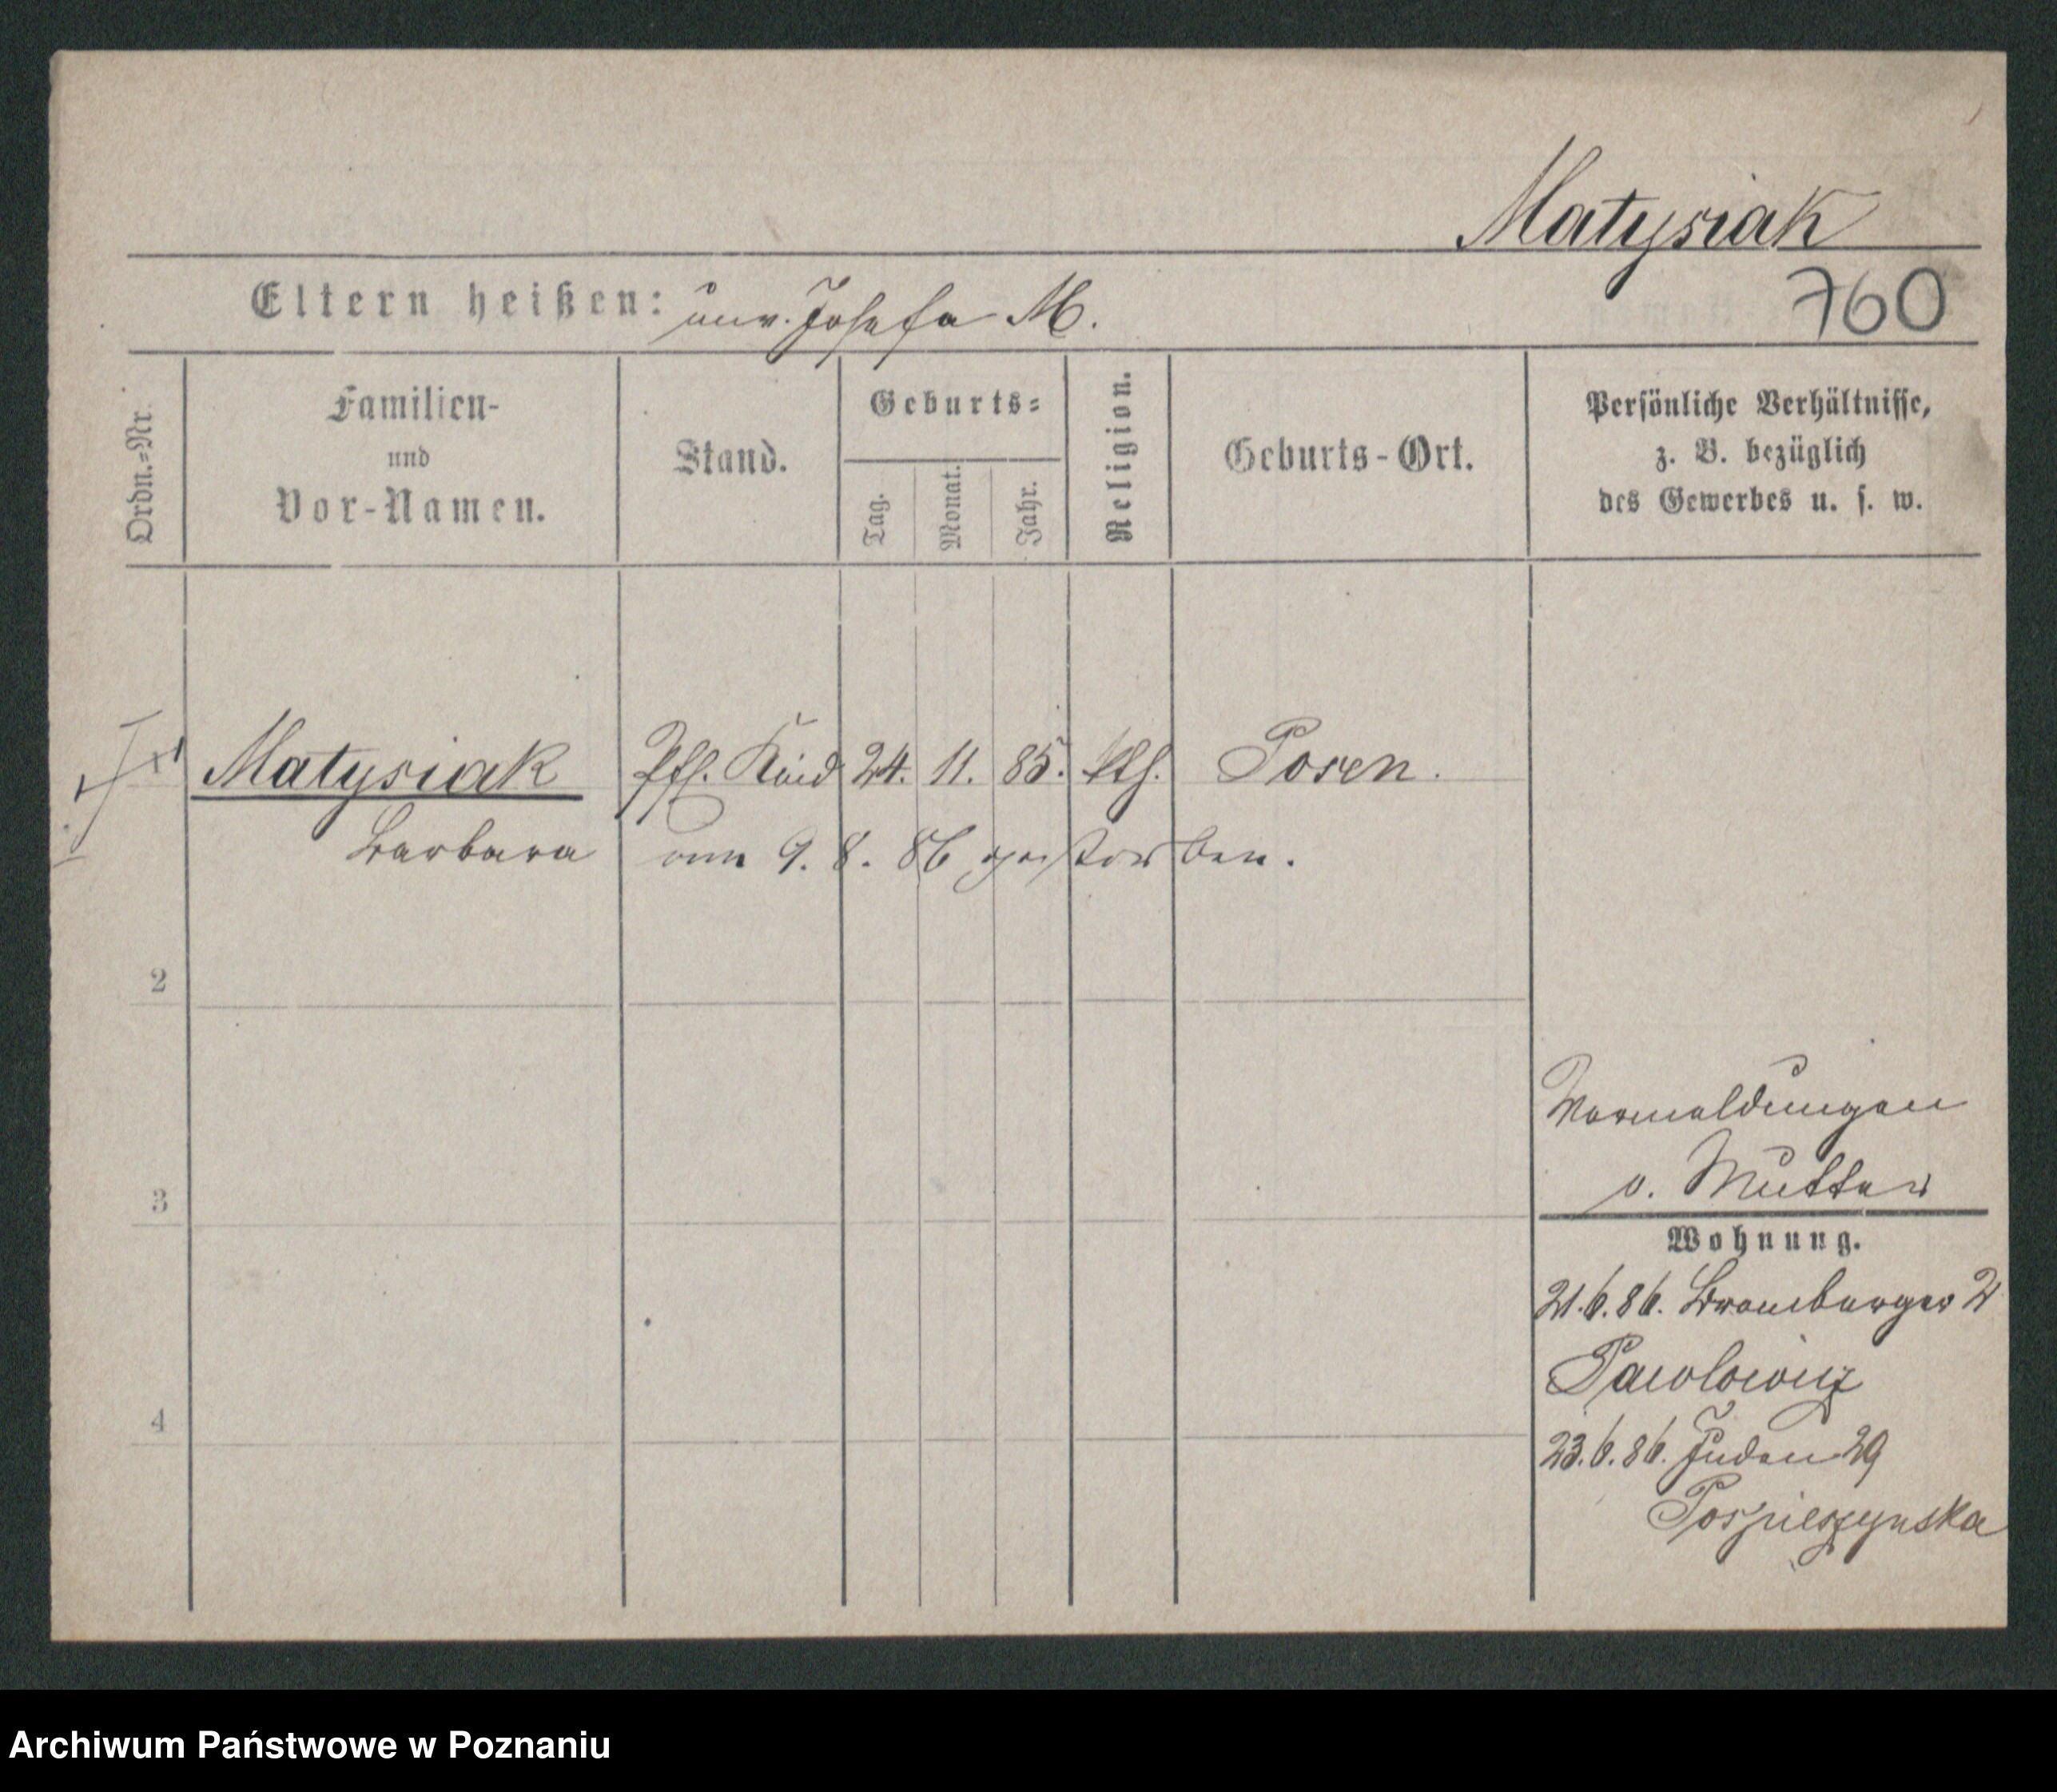 Matysiak
Eltern heißen: unv. Josefa M.
760
Ordn.=Nr.
Familien-
und
Vor-Namen.
Stand.
Geburts=
Tag.
Monat.
Jahr.
Religion.
Geburts-Ort.
Persönliche Verhältnisse,
z. B. bezüglich
des Gewerbes u. s. w.
Matysiak Pfl. Kind 24. 11. 85. kth. Posen.
Barbara am 9. 8. 86 gestorben.
2
3
4
Vormeldungen
v. Mutter
Wohnung.
21.6.86. Bromberger 2
Pawlowicz
23.6.86. Juden 29
Pospieszynska
Archiwum Państwowe w Poznaniu